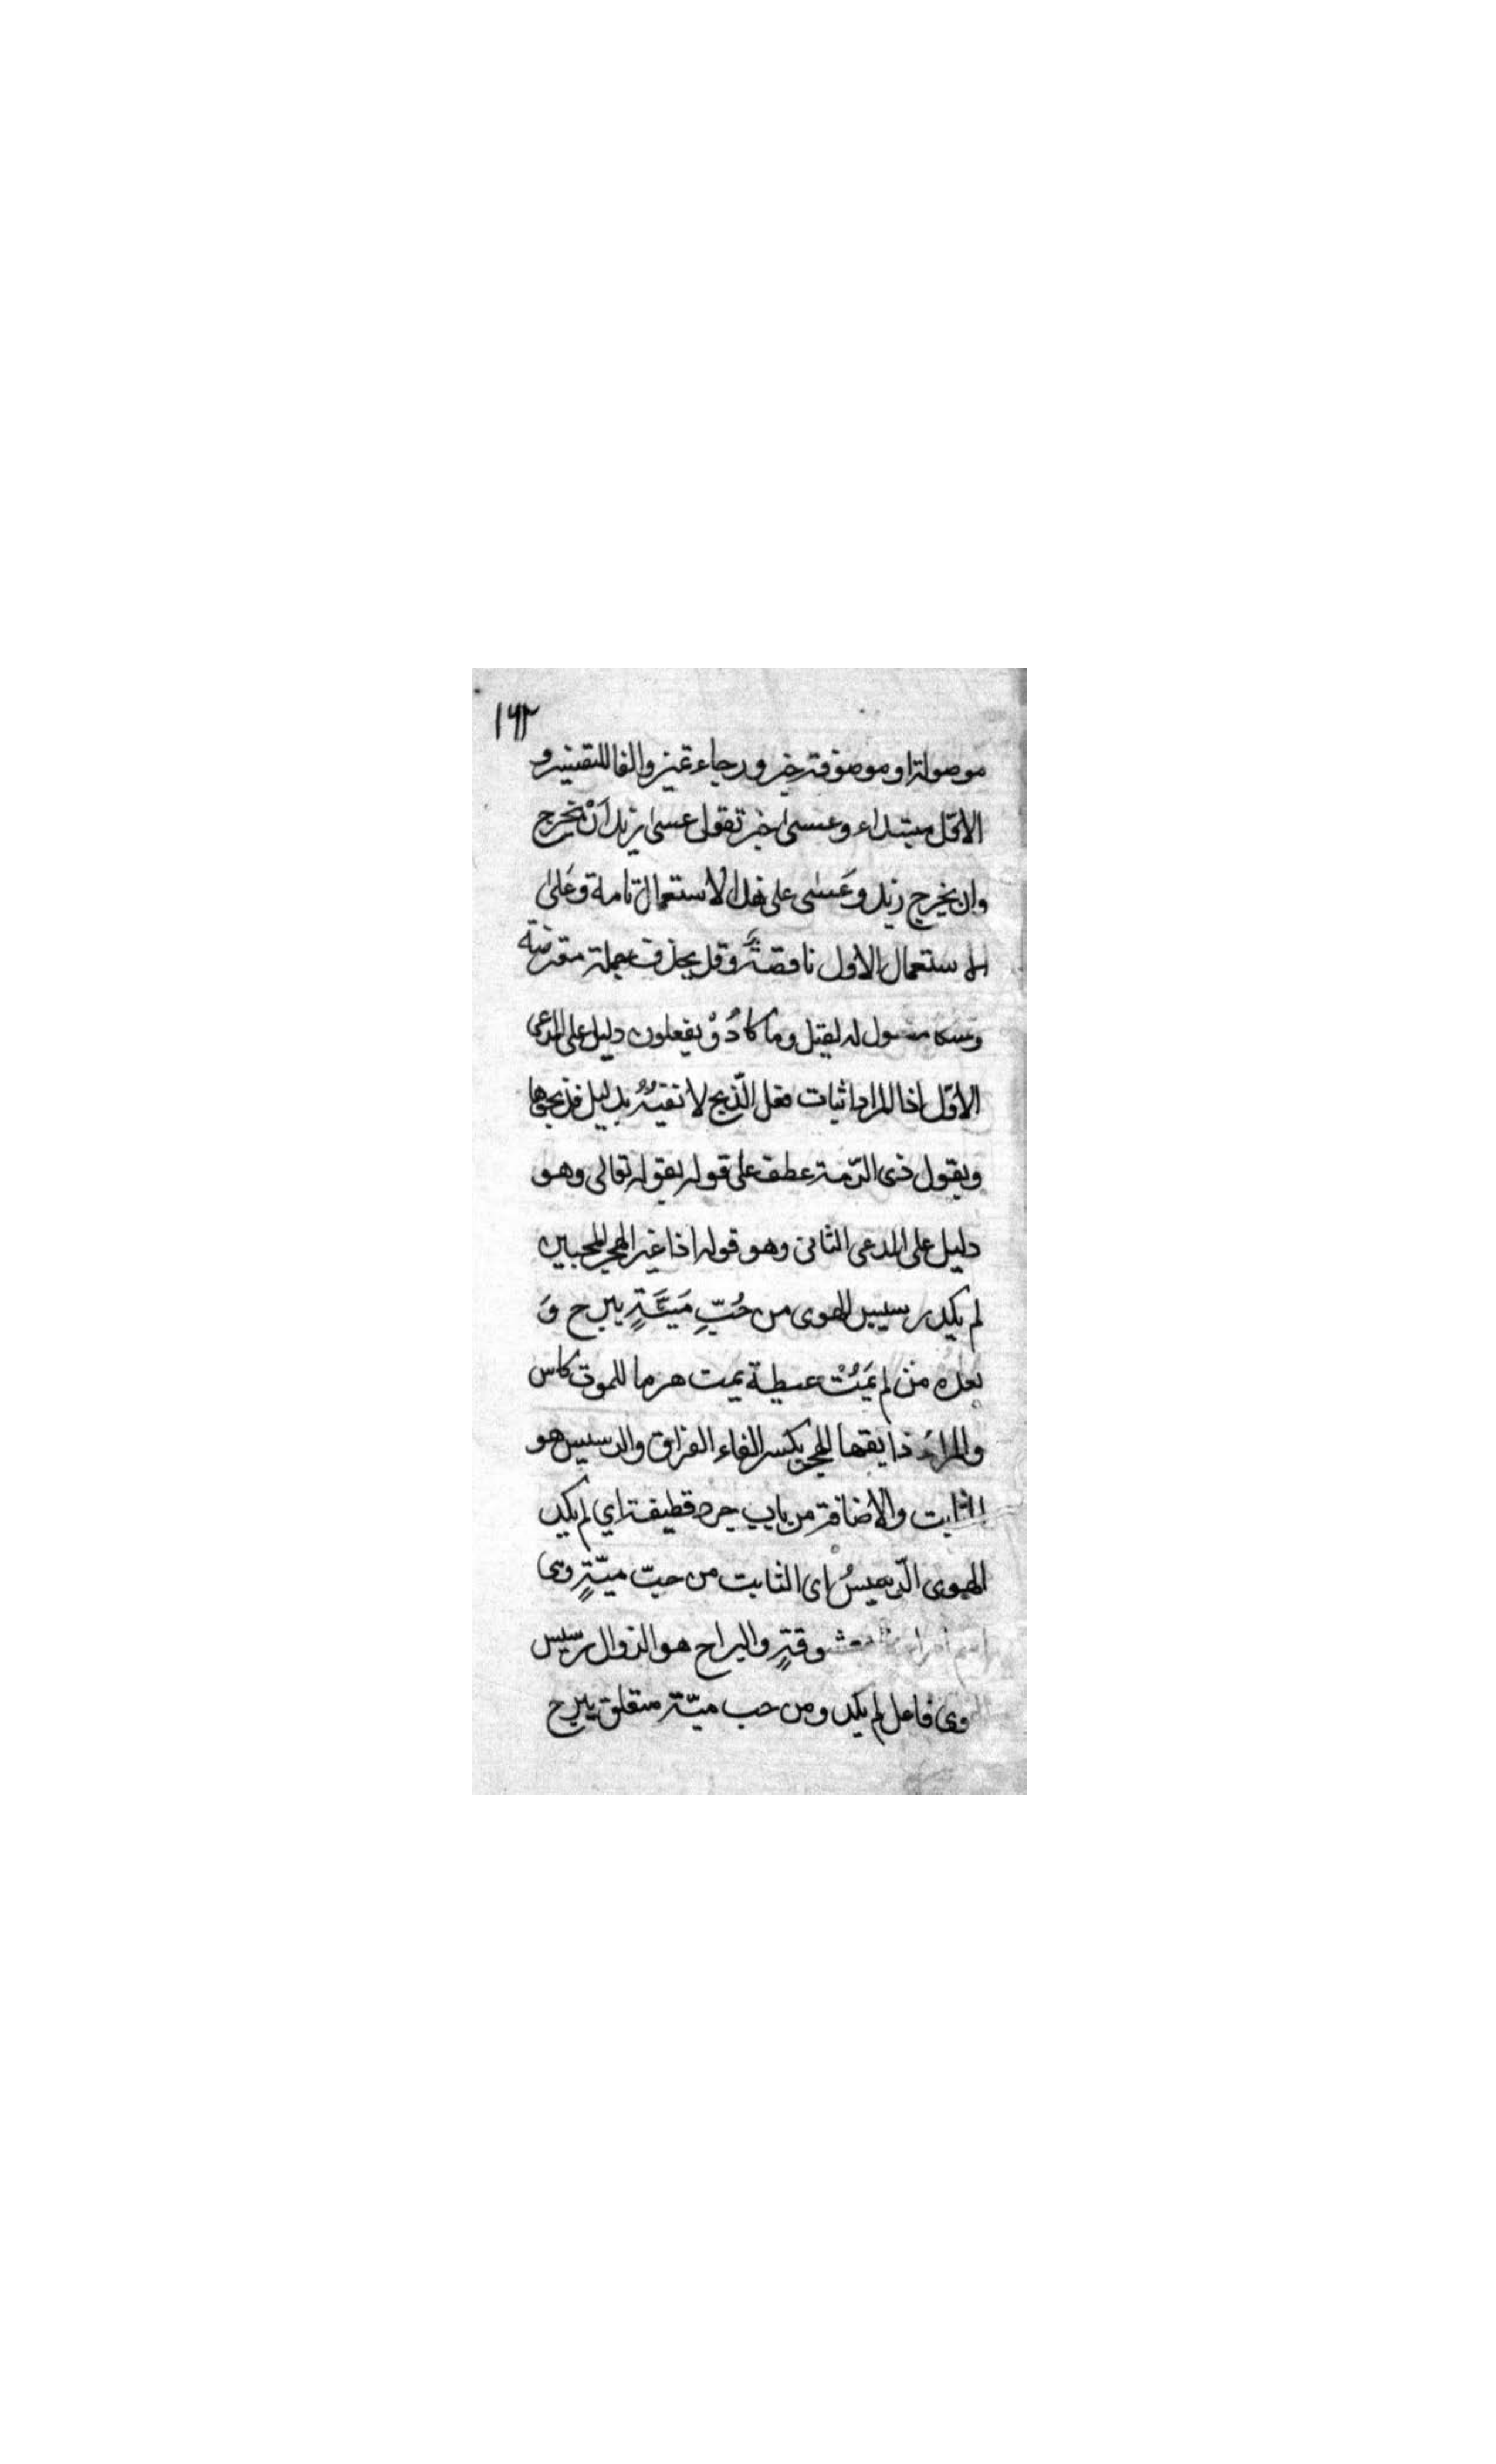 ١٦٢
موصولة او موصوفة خبر ورجاء تميز والفا للتفسير و
الاوّل مبتداء وعسىٰ خبر تقول عسىٰ زيد اَنْ يخرج
وان يخرج زيد وعَسٰى على هذا الاستعمال تامة وَعَلىٰ
الاستعمال الاول ناقصةٌ وقد يحذف جملة معترضة
لقيل وما كادُوْ يفعلون دليل على المدعى
الاوّل اذا المراد اثبات فعل الذّبح لا نفيُهُ بدليل فذبحوها
وبقول ذى الرّمة عطف على قوله بقوله تعالى وهو
دليل على المدعى الثانى وهو قوله اذا غير الهجر المحبين
لم يكد رسيس الهوى من حُبِّ مَيَّةٍ يبرح وَ
بعده من لم يَمُتْ عبطة يمت هرما للموت كاس
والمراء ذايقها الهجر بكسر الفاء الفراق والرسيس هو
الثابت والاضافة من باب جرد قطيفة اي لم يكد
الهوى الرّسيسُ اى الثابت من حبّ ميّةٍ وهى
اسم امراة معشوقةٍ والبراح هو الزوال رسيس
الهوى فاعل لم يكد ومن حب ميّة متعلق يبرح